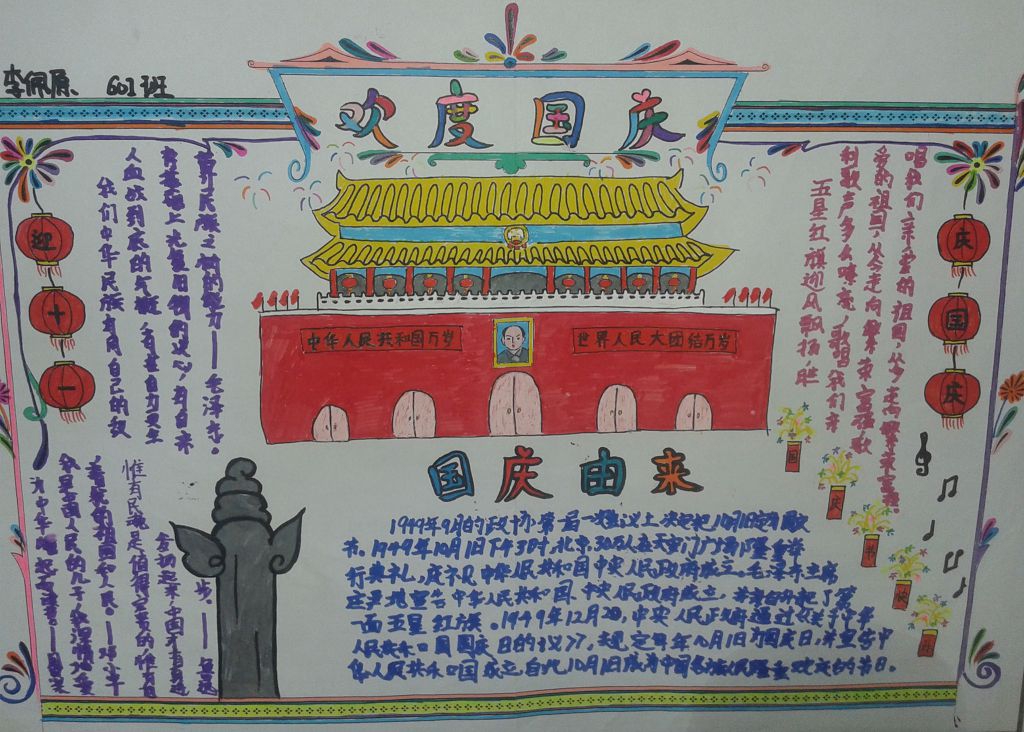 李佩原 601班
欢度国庆
迎十一
庆国庆
中华人民共和国万岁
世界人民大团结万岁
五星红旗迎风飘扬,胜
利歌声多么响亮,歌唱我们亲
爱的祖国,从今走向繁荣富强。歌
唱我们亲爱的祖国,从今走向繁荣富强。
我们中华民族有同自己的敌
人血战到底的气概,有在自力更生
的基础上光复旧物的决心,有自立于
世界民族之林的能力——毛泽东。
惟有民魂是值得宝贵的,惟有
我是中国人民的儿子,我深情地爱
着我的祖国和人民。——邓小平
国庆由来
1949年9月的政协第一届一次会议上决定把10月1日定为国庆
节。1949年10月1日下午3时,北京30万人在天安门广场隆重举
行典礼,庆祝中华人民共和国中央人民政府成立。毛泽东主席
庄严地宣告中华人民共和国中央人民政府成立,并亲自升起了第
一面五星红旗。1949年12月2日,中央人民政府通过《关于中华
人民共和国国庆日的决议》,规定每年10月1日为国庆日,并宣告中
华人民共和国成立,自此10月1日成为中国各族人民隆重欢庆的节日。
国
庆
快